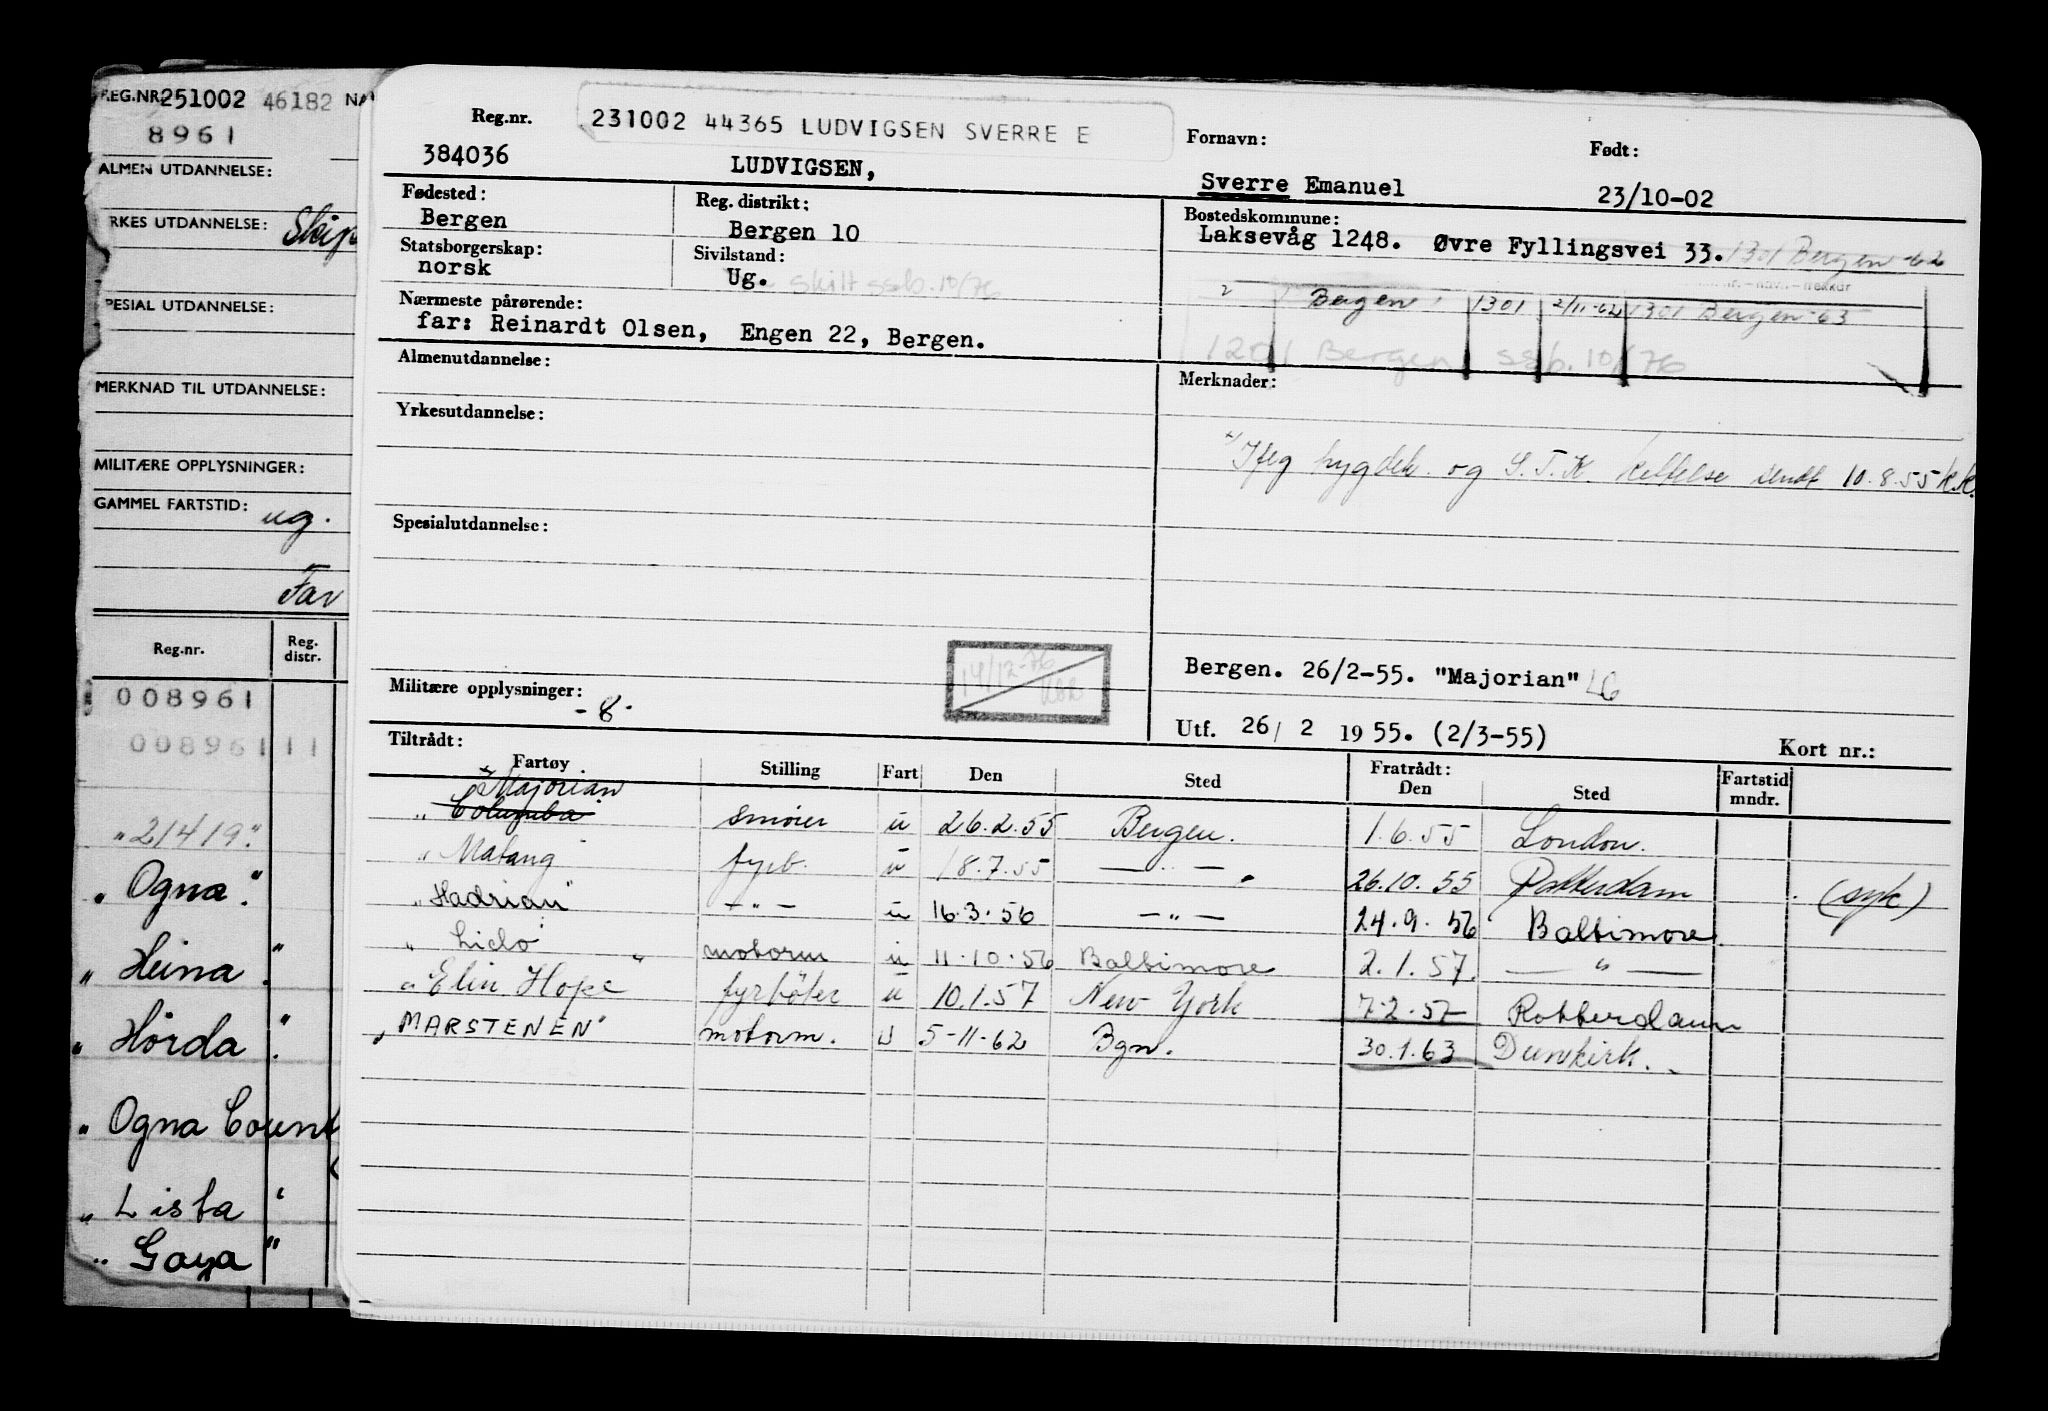 REG.NR. 251002 46182 NA
8961
ALMEN UTDANNELSE:
RKES UTDANNELSE: Skip
PESIAL UTDANNELSE:
MERKNAD TIL UTDANNELSE:
MILITÆRE OPPLYSNINGER:
GAMMEL FARTSTID: ug.
Far
Reg.nr. Reg. distr.
008961
008961 11
"21419."
"Ogna".
"Heina".
"Hörda".
"Ogna Count
"Lista"
"Goya"
Reg.nr. 231002 44365 LUDVIGSEN SVERRE E Fornavn: Født:
384036 LUDVIGSEN, Sverre Emanuel 23/10-02
Fødested: Reg. distrikt: Bostedskommune:
Bergen Bergen 10 Laksevåg 1248. Øvre Fyllingsvei 33. 1301 Bergen -62
Statsborgerskap: Sivilstand:
norsk Ug. skilt ssb. 10/76
Bergen 1301 2/11-62 1301 Bergen-65
Nærmeste pårørende:
far: Reinardt Olsen, Engen 22, Bergen.
1201 Bergen ssb. 10/76
Almenutdannelse: Merknader:
Yrkesutdannelse:
og S.T.K. sendt 10.8.55 K.K.
Spesialutdannelse:
14/12-76
Bergen. 26/2-55. "Majorian" LG
Militære opplysninger: -8-
Utf. 26/ 2 1955. (2/3-55) Kort nr.:
Tiltrådt: Fratrådt:
Fartøy Stilling Fart Den Sted Den Sted Fartstid mndr.
x Majorian
"Columba" smører u 26.2.55 Bergen. 1.6.55 London.
"Matang" fyrb. u 18.7.55 — " — 26.10.55 Rotterdam (syk)
"Hadrian" — " — u 16.3.56 — " — 24.9.56 Baltimore.
"Lido" motorm u 11.10.56 Baltimore 2.1.57. — " —
"Elin Hope" fyrbøter u 10.1.57 New York 7-2-57 Rotterdam
"MARSTENEN" motorm. u 5-11-62 Bgn. 30.1.63 Dunkirk.